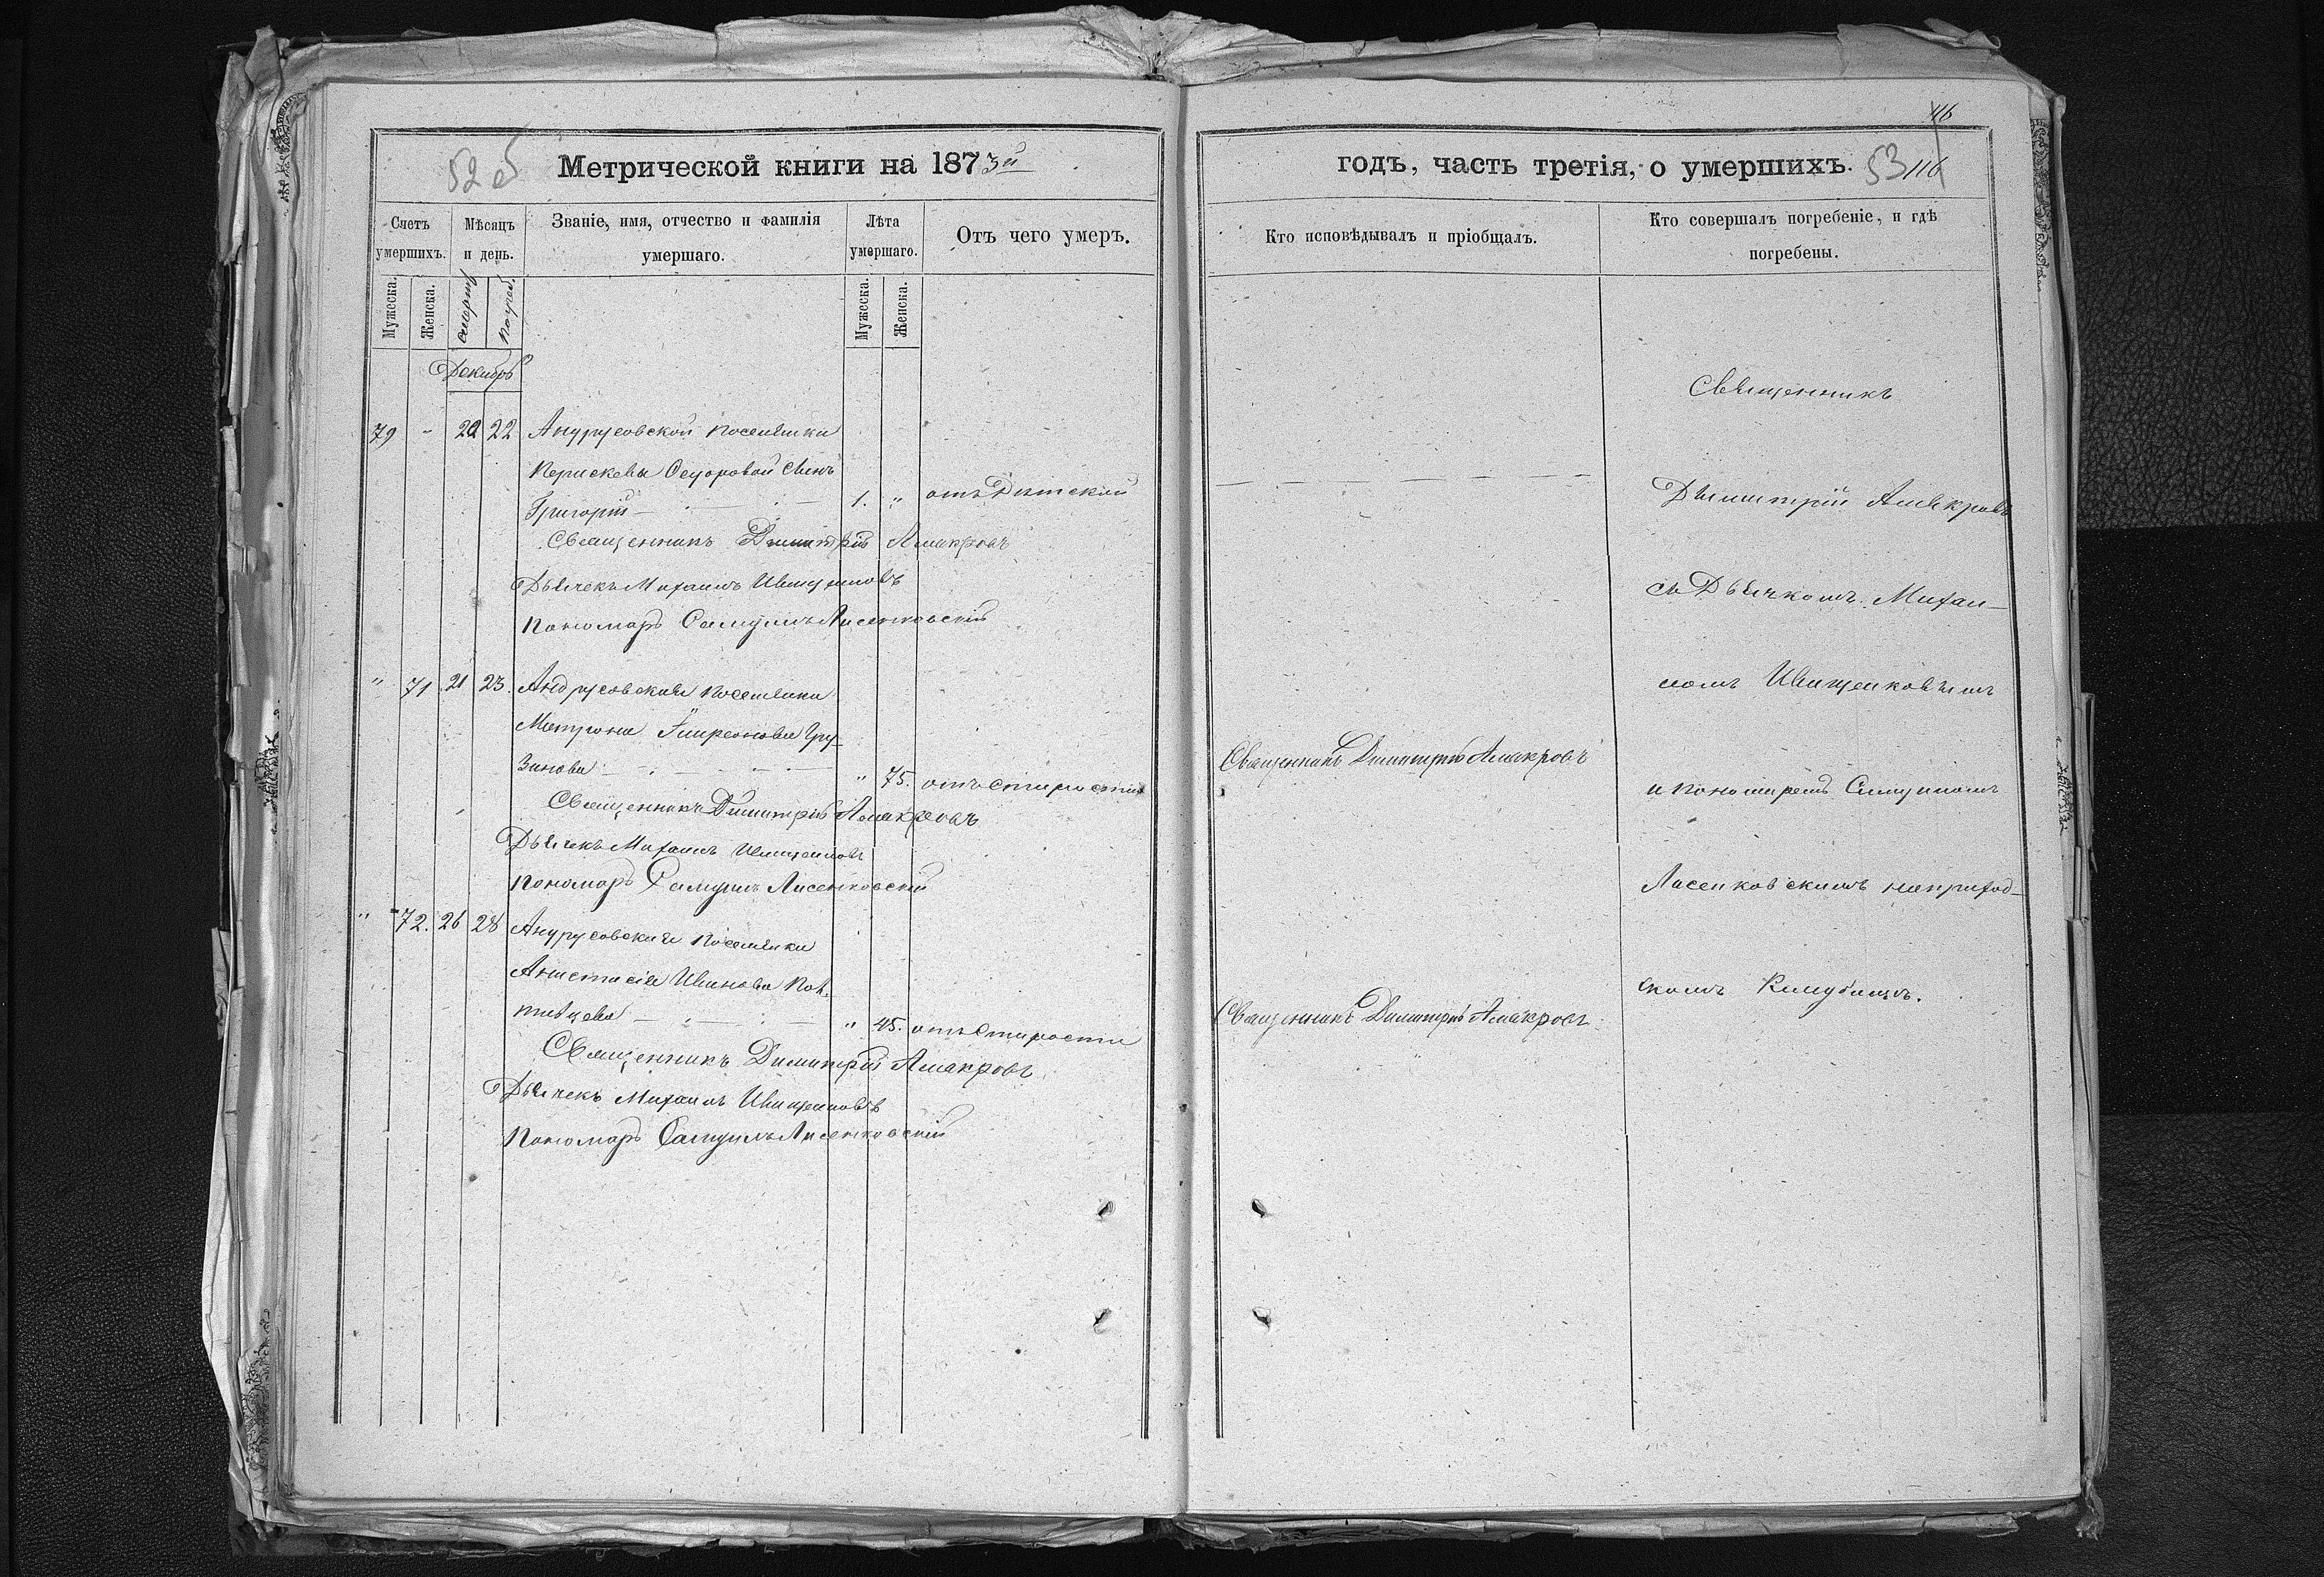 52 об
Метрической книги на 1873й
Счетъ умершихъ.
Мѣсяцъ и день.
Званіе, имя, отчество и фамилія умершаго.
Лѣта умершаго.
Отъ чего умеръ.
Мужеска.
Женска.
Смерт.
Погреб.
Мужеска.
Женска.
Декабрь
79 - 20 22 Андрусовской поселянки
Перискевы Федоровой сынъ
Григорій 1. " отъ Дѣтской
Священникъ Димитрій Амакровъ
Дьячекъ Михаилъ
Пономарь Самуилъ Лисенковскій
" 71 21 23. Андрусовская поселянка
Матрона Гру-
зинова " 75. отъ старости
Священникъ Димитрій Амакровъ
Дьячекъ Михаилъ
Пономарь Самуилъ Лисенковскій
" 72. 26 28 Андрусовская поселянка
Анастасія Иванова
" 45. отъ старости
Священникъ Димитрій Амакровъ
Дьячекъ Михаилъ
Пономарь Самуилъ Лисенковскій
116
годъ, часть третія, о умершихъ. 53 116
Кто исповѣдывалъ и пріобщалъ.
Кто совершалъ погребеніе, и гдѣ погребены.
Священникъ
Димитрій Амакровъ
съ Дьячкомъ Михаи-
ломъ
Священникъ Димитрій Амакровъ
и пономаремъ Самуиломъ
Лисенковскимъ наприход-
скомъ Кладбищѣ.
Священникъ Димитрій Амакровъ